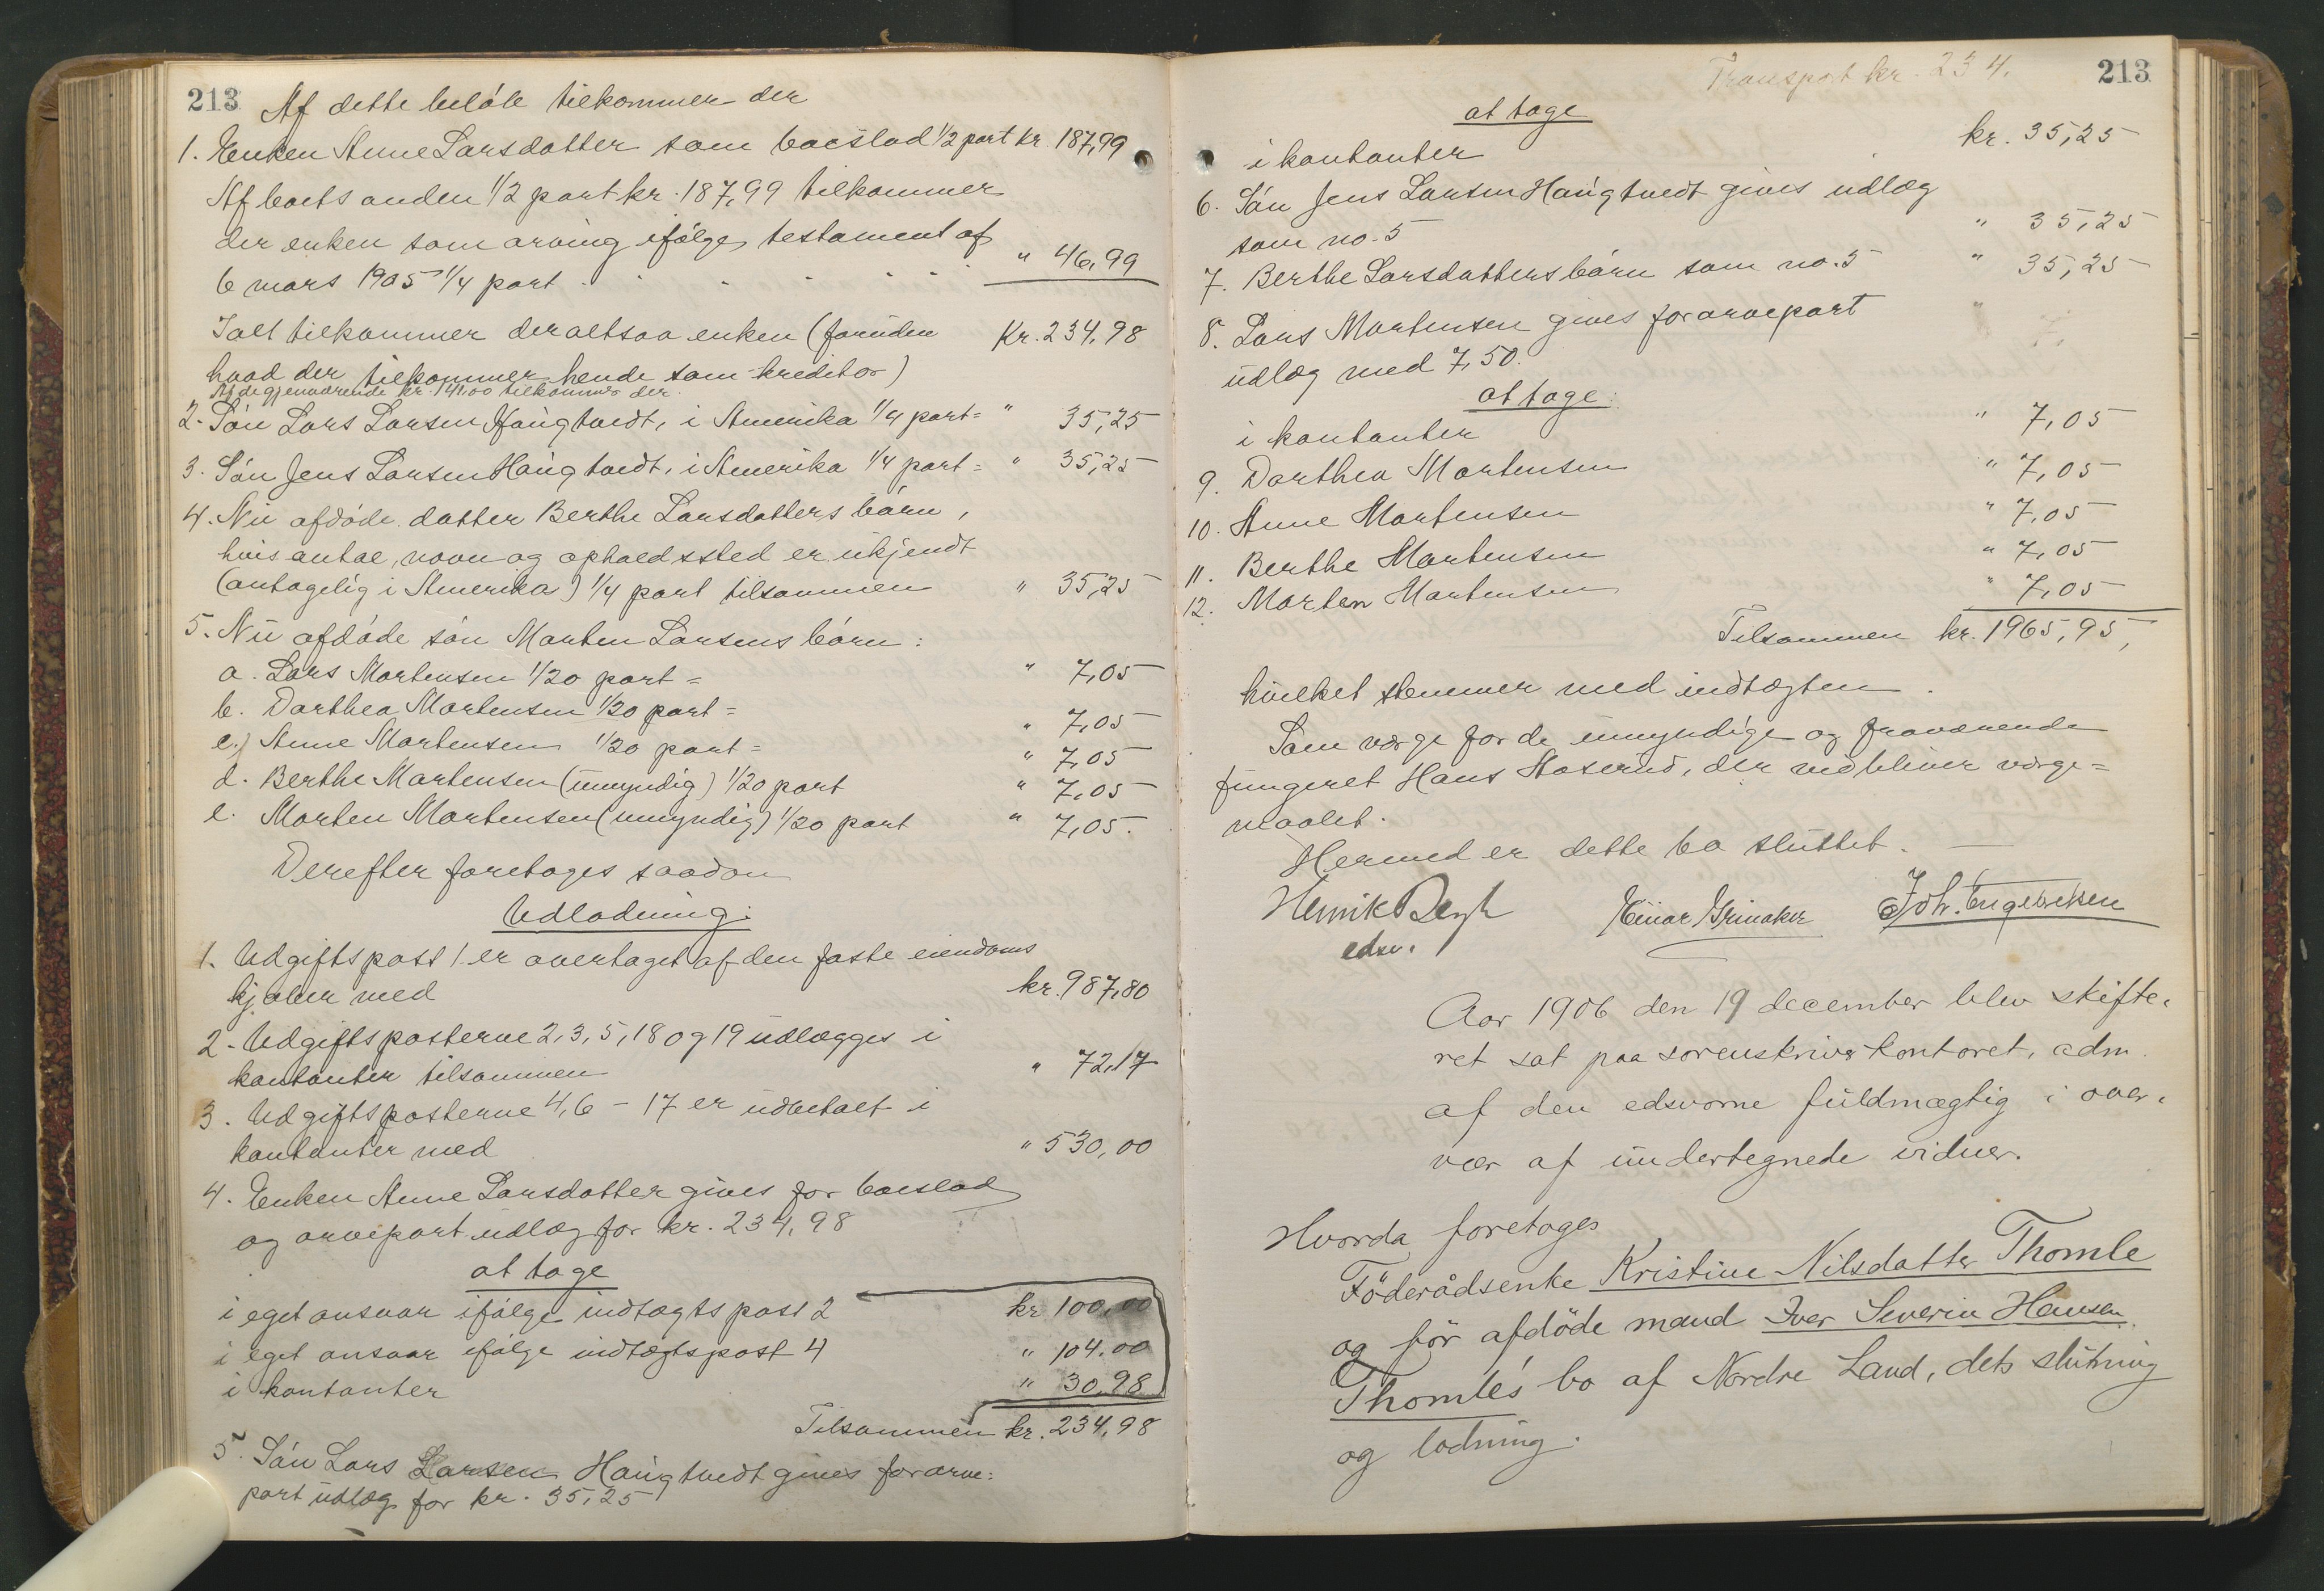 213 Af dette beløb tilkommer der
1. Enken Anne Larsdatter som boeslod 1/2 part kr. 187,99
Af boets anden 1/2 part kr. 187,99 tilkommer
der enken som arving ifølge testament af
6 mars 1905 1/4 part . . . . . . " 46,99
Ialt tilkommer der altsaa enken (foruden Kr. 234,98
hvad der tilkommer hende som kreditor)
Af de gjenværende kr. 141,00 tilkommer der
2. Søn Lars Larsen Haugtvedt, i Amerika 1/4 part = " 35,25
3. Søn Jens Larsen Haugtvedt, i Amerika 1/4 part = " 35,25
4. Nu afdøde datter Berthe Larsdatters børn,
hvis antal, navn og opholdssted er ukjendt
(antagelig i Amerika) 1/4 part tilsammen " 35,25
5. Nu afdøde søn Morten Larsens børn:
a. Lars Mortensen 1/20 part = " 7,05
b. Dorthea Mortensen 1/20 part = " 7,05
c.) Anne Mortensen 1/20 part = " 7,05
d. Berthe Mortensen (umyndig) 1/20 part " 7,05
e. Morten Mortensen (umyndig) 1/20 part " 7,05.
Derefter foretages saadan
Udlodning:
1. Udgiftspost 1 er overtaget af den faste eiendoms
kjøber med kr. 987,80
2. Udgiftsposterne 2, 3, 5, 18 og 19 udlægges i
kontanter tilsammen " 72,17
3. Udgiftsposterne 4, 6 - 17 er udbetalt i
kontanter med " 530,00
4. Enken Anne Larsdatter gives for boeslod
og arvepart udlæg for kr. 234,98
at tage
i eget ansvar ifølge indtægtspost 2 kr 100,00
i eget ansvar ifølge indtægtspost 4 " 104.00
i kontanter " 30,98
Tilsammen kr. 234,98
5. Søn Lars Larsen Haugtvedt gives for arve=
part udlæg for kr. 35,25
Transport kr. 234. 213
at tage
i kontanter kr. 35,25
6. Søn Jens Larsen Haugtvedt gives udlæg
som no. 5 " 35,25
7. Berthe Larsdatters børn som no. 5 " 35,25
8. Lars Mortensen gives for arvepart " 7,
udlæg med 7,50.
at tage:
i kontanter " 7,05
9. Dorthea Mortensen " 7,05
10. Anne Mortensen " 7,05
11. Berthe Mortensen " 7,05
12. Morten Mortensen " 7,05
Tilsammen kr. 1965,95,
hvilket stemmer med indtægten.
Som værge for de umyndige og fraværende
fungeret Hans Aaserud, der vedbliver værge=
maalet.
Hermed er dette bo sluttet. —
Henrik Einar Grinaker Joh. Engebretsen
edsv.
Aar 1906 den 19 december blev skifte-
ret sat paa sorenskriverkontoret, adm.
af den edsvorne fuldmægtig i over-
vær af undertegnede vidner.
Hvorda foretoges
Föderådsenke Kristine Nilsdatter Thomle
og för afdöde mand Iver Severin Hansen
Thomles' bo af Nordre Land, dets slutning
og lodning.